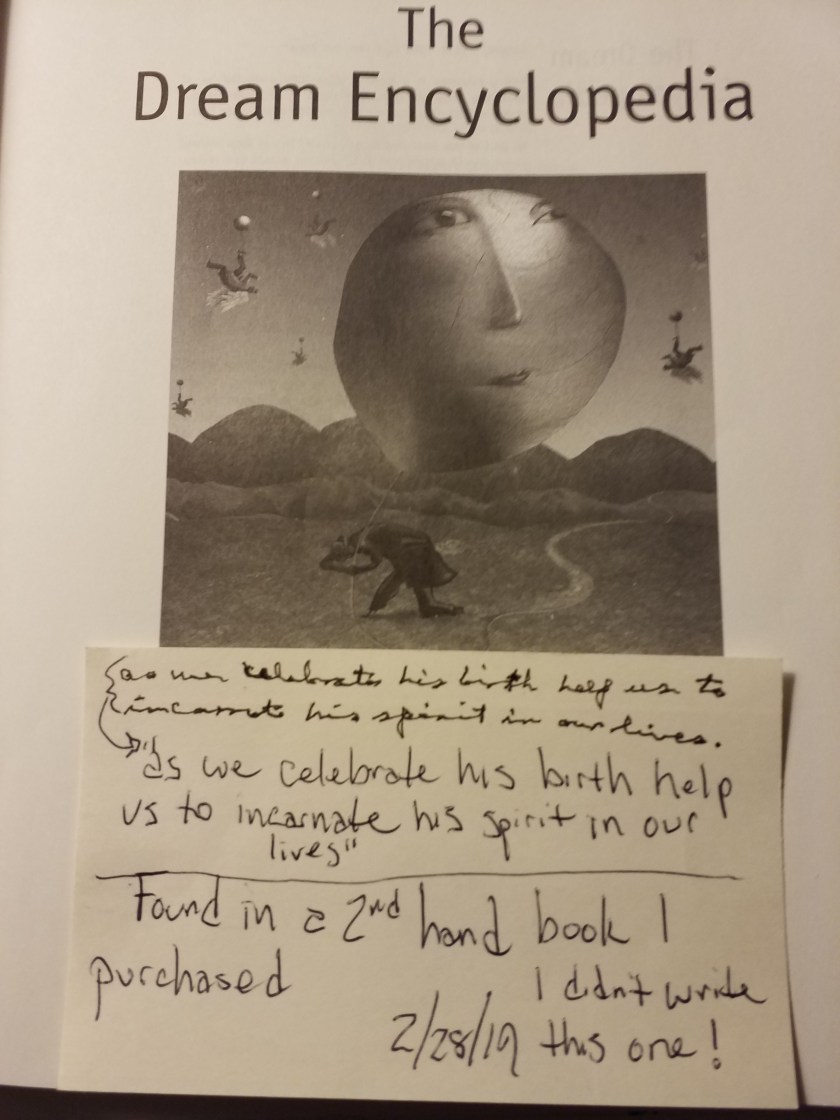 The
Dream Encyclopedia
as we celebrate his birth help us to
incarnate his spirit in our lives.
"as we celebrate his birth help
us to incarnate his spirit in our
lives"
Found in a 2nd hand book I
purchased
I didn't write
2/28/19 this one!